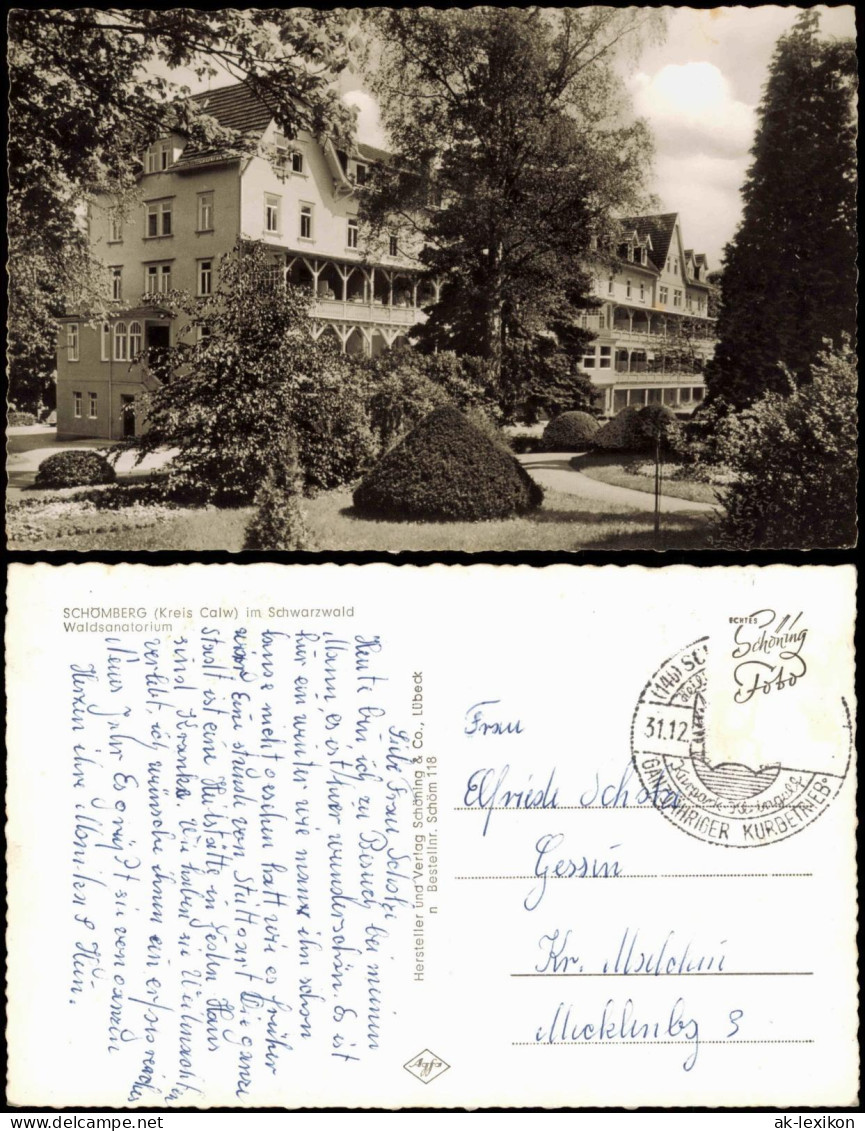 SCHÖMBERG (Kreis Calw) im Schwarzwald
Waldsanatorium
Heute bin ich zu Besuch bei meinem
Mann, es ist hier wunderschön. Es ist
für ein winter wie mann ihn schon
lange nicht gesehen hatt wie es früher
war. Eine stunde von Stuttgart. Die ganze
stadt ist eine Heilstätte in jeden Haus
sind Kranke. Wir haben die Weihnachten
verlebt, ich wünsche ihnen ein erfolgreiches
Neues Jahr. Es grüßt sie von ganzen
Herzen ihre
Hersteller und Verlag Schöning & Co., Lübeck
n Bestellnr. Schöm 118
Agfa
ECHTES
Schöning
Foto
(14b) SC
31.12.
GANZJÄHRIGER KURBETRIEB
Frau
Elfriede
Gessin
Kr. Malchin
Mecklenbg
ak-lexikon